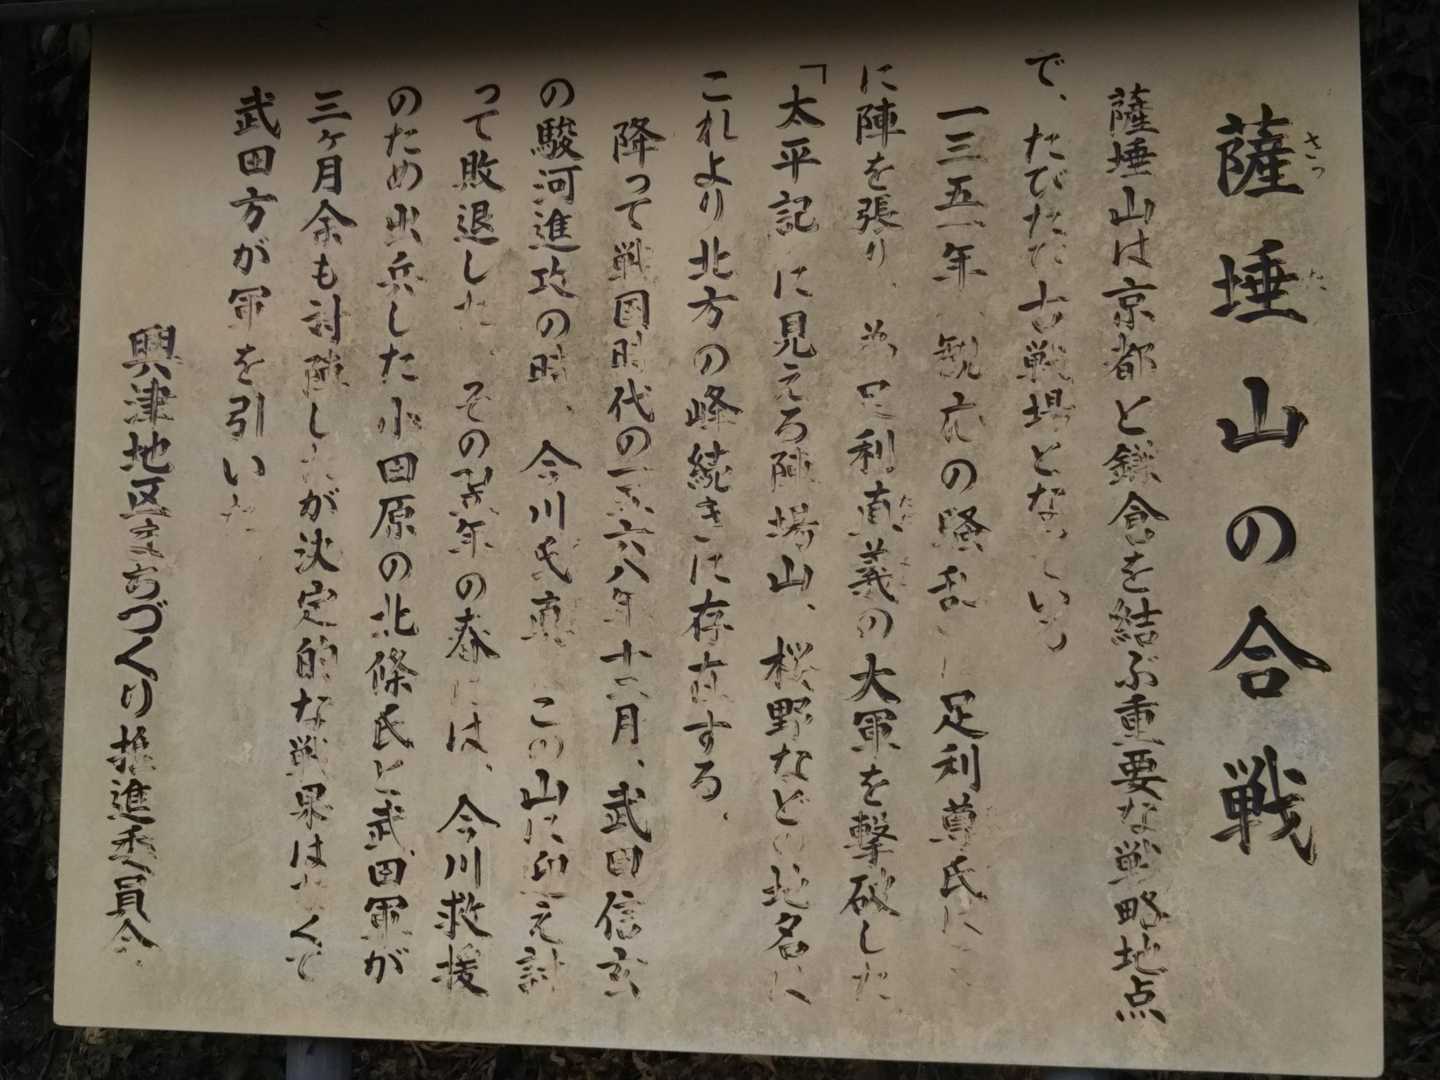 薩埵山の合戦
さつ た
薩埵山は京都と鎌倉を結ぶ重要な戦略地点
で、たびたび古戦場となっている
一三五一年、観応の騒乱に足利尊氏は
に陣を張り、弟足利直義の大軍を撃破した
「太平記」に見える陣場山、桜野などの地名は
これより北方の峰続きに存在する。
降って戦国時代の一五六八年十二月、武田信玄
の駿河進攻の時、今川氏真 この山に迎え討
って敗退した、その翌年の春には、今川救援
のため出兵した小田原の北條氏と武田軍が
三ヶ月余も対陣したが決定的な戦果はなくて
武田方が軍を引いた
興津地区まちづくり推進委員会